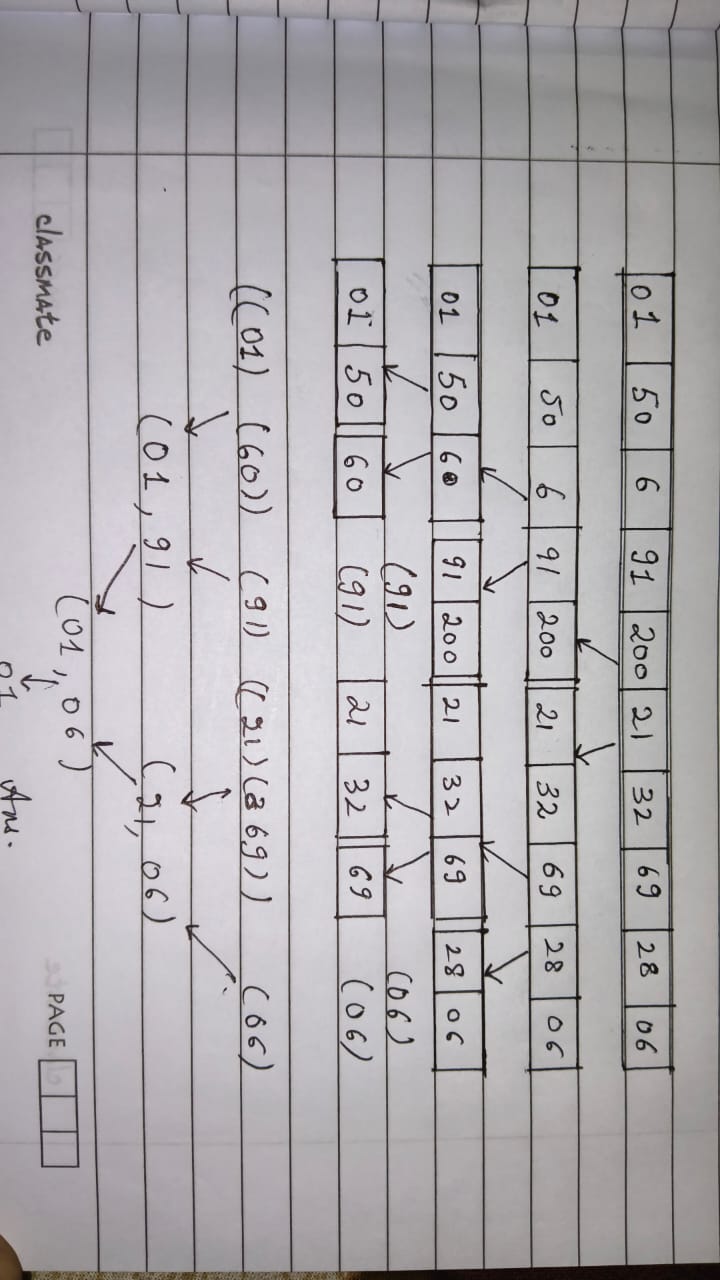 01 50 6 91 200 21 32 69 28 06
01 50 6 91 200 21 32 69 28 06
01 50 60 91 200 21 32 69 28 06
(91) (06)
01 50 60 (91) 21 32 69 (06)
((01) (60)) (91) ((21) (69)) (06)
(01, 91) (21, 06)
(01, 06)
classmate PAGE
01 Ans.